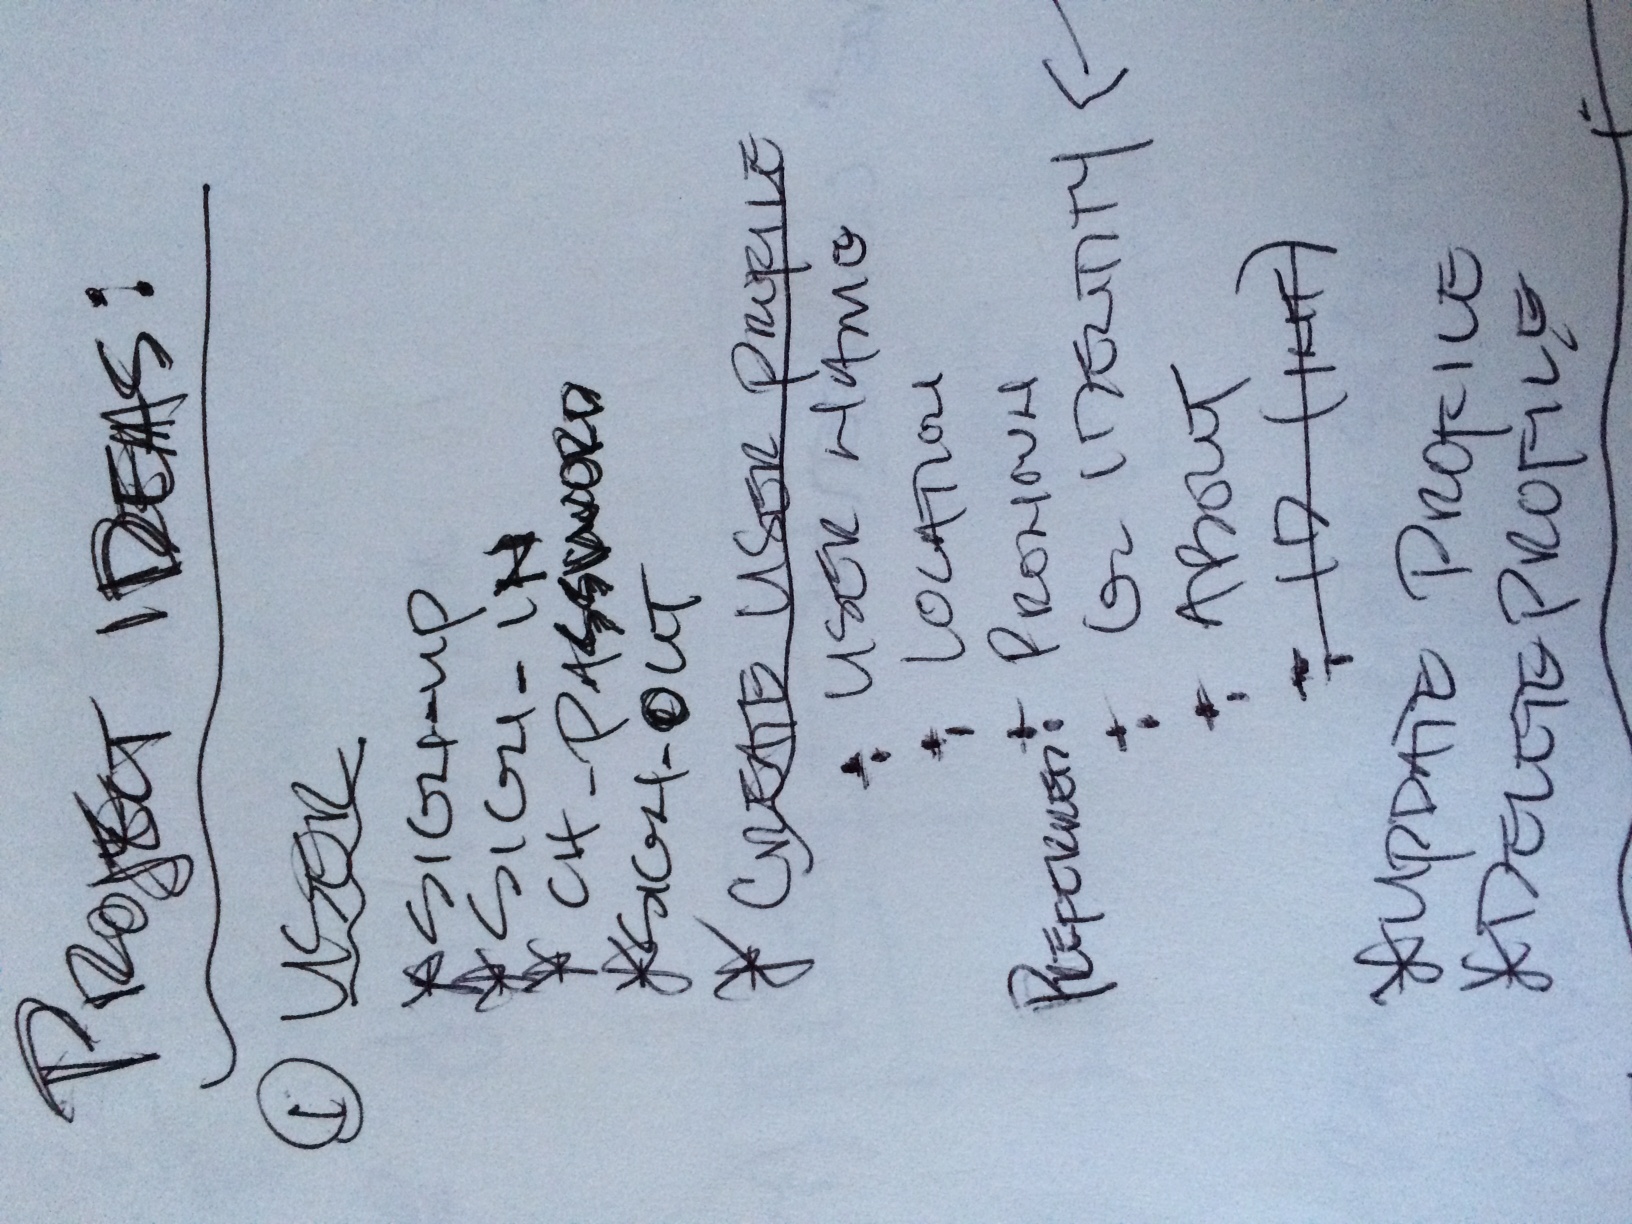 PROJECT IDEAS:
① USER
* SIGN-UP
* SIGN-IN
* CH-PASSWORD
* SIGN-OUT
* CREATE USER PROFILE
+ USER NAME
+ LOCATION
PREFERRED: + PRONOUN
+ G. IDENTITY
+ ABOUT
* UPDATE PROFILE
* DELETE PROFILE